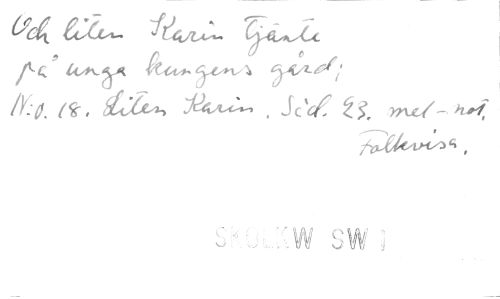 Och liten Karin tjänte
på unga kungens gård;
N:o. 18. Liten Karin. Sid. 23. mel-not.
Folkvisa.
SKOLKW SW 1